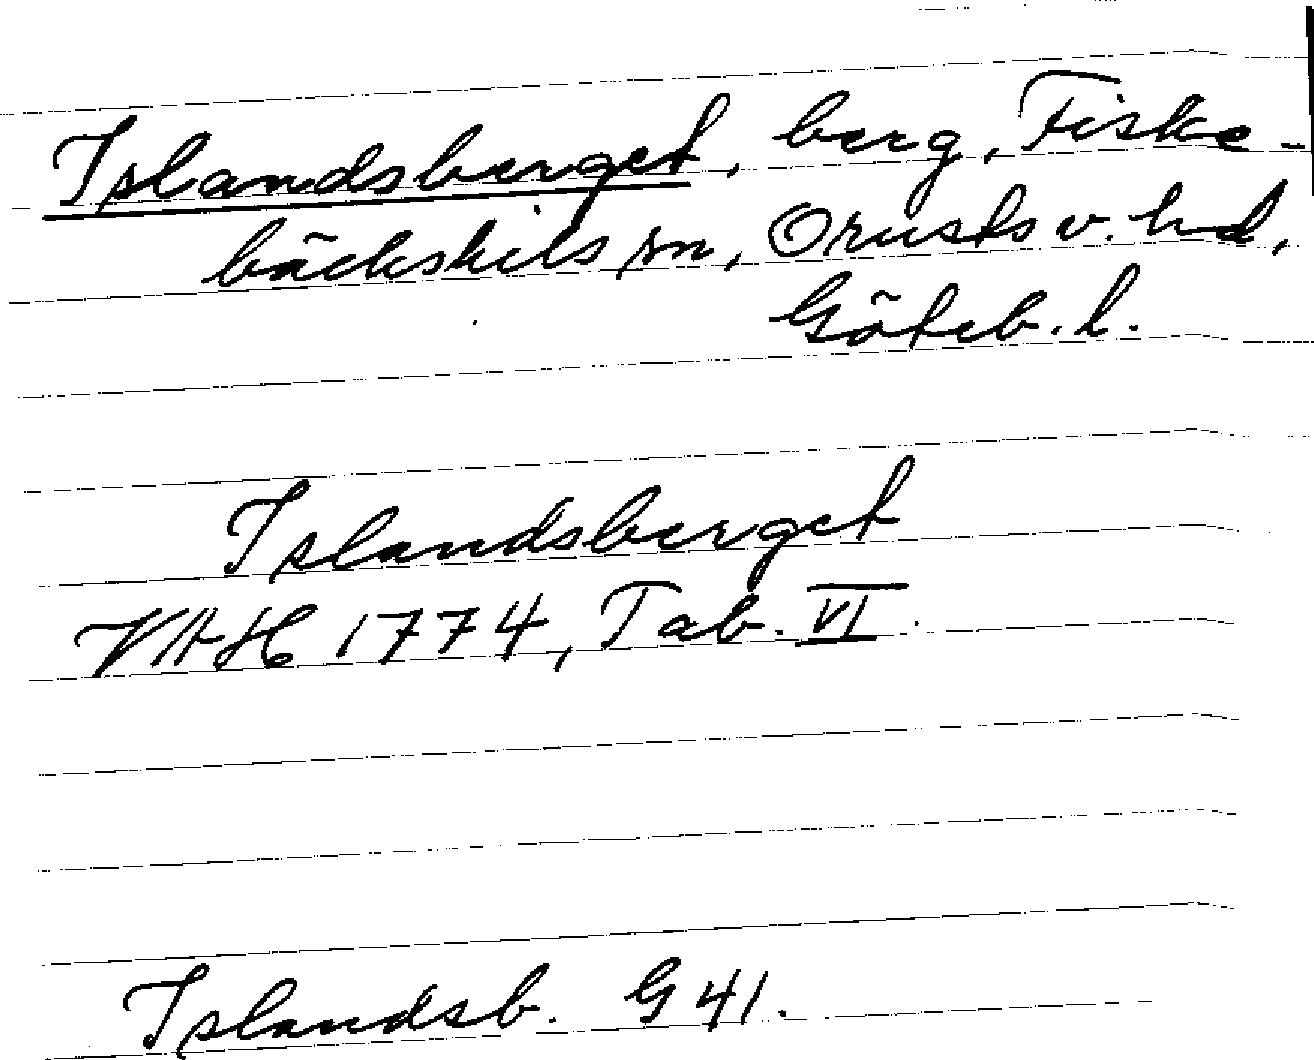 Islandsberget, berg, Fiske-
bäckskils sn, Orusts v. hd,
Göteb. l.
Islandsberget
VAH 1774, Tab. VI.
Islandsb. G 41.